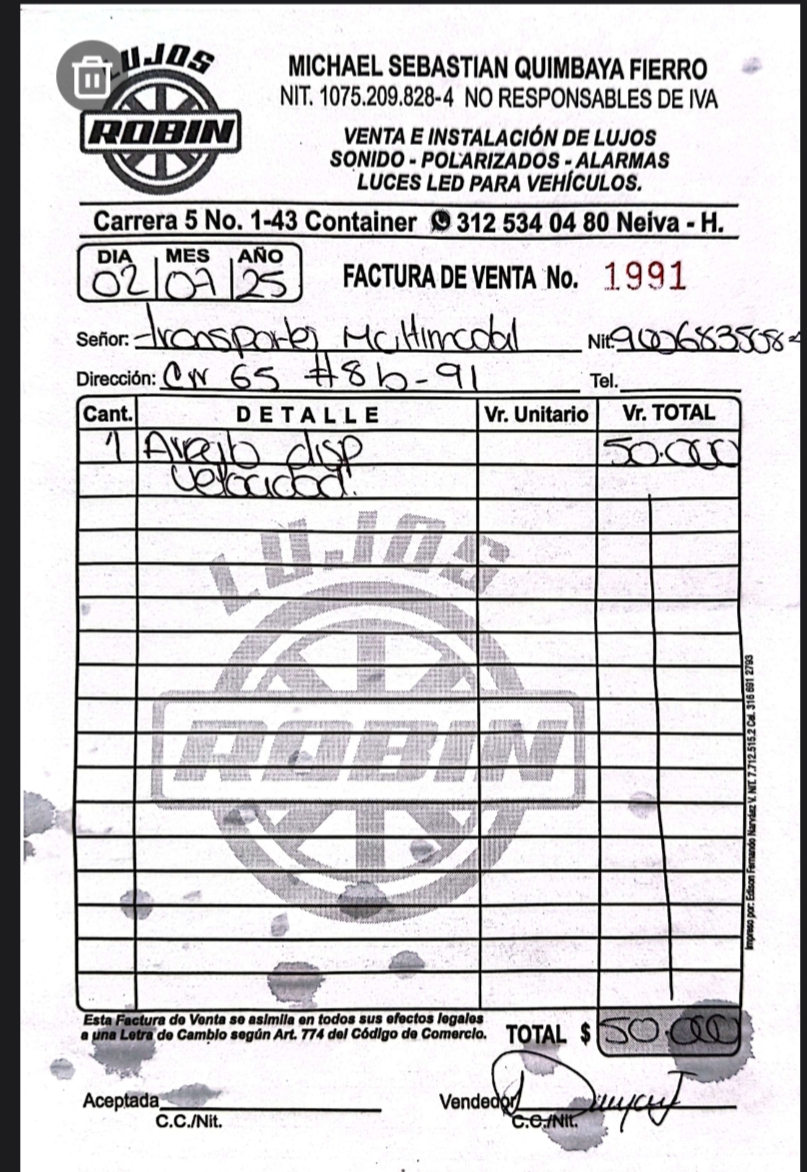 LUJOS
ROBIN
MICHAEL SEBASTIAN QUIMBAYA FIERRO
NIT. 1075.209.828-4 NO RESPONSABLES DE IVA
VENTA E INSTALACIÓN DE LUJOS
SONIDO - POLARIZADOS - ALARMAS
LUCES LED PARA VEHÍCULOS.
Carrera 5 No. 1-43 Container 312 534 04 80 Neiva - H.
DIA MES AÑO
02 07 25
FACTURA DE VENTA No. 1991
Señor: Transportes Multimodal Nit: 900683508-
Dirección: Cr 65 #8b-91 Tel.
Cant. DETALLE Vr. Unitario Vr. TOTAL
1 Arreglo disp 50.000
velocidad.
LUJOS
ROBIN
Impreso por: Edison Fernando Narváez V. NIT. 7.712.515.2 Cel. 316 691 2793
Esta Factura de Venta se asimila en todos sus efectos legales
a una Letra de Cambio según Art. 774 del Código de Comercio.
TOTAL $ 50.000
Aceptada Vendedor
C.C./Nit. C.C./Nit.